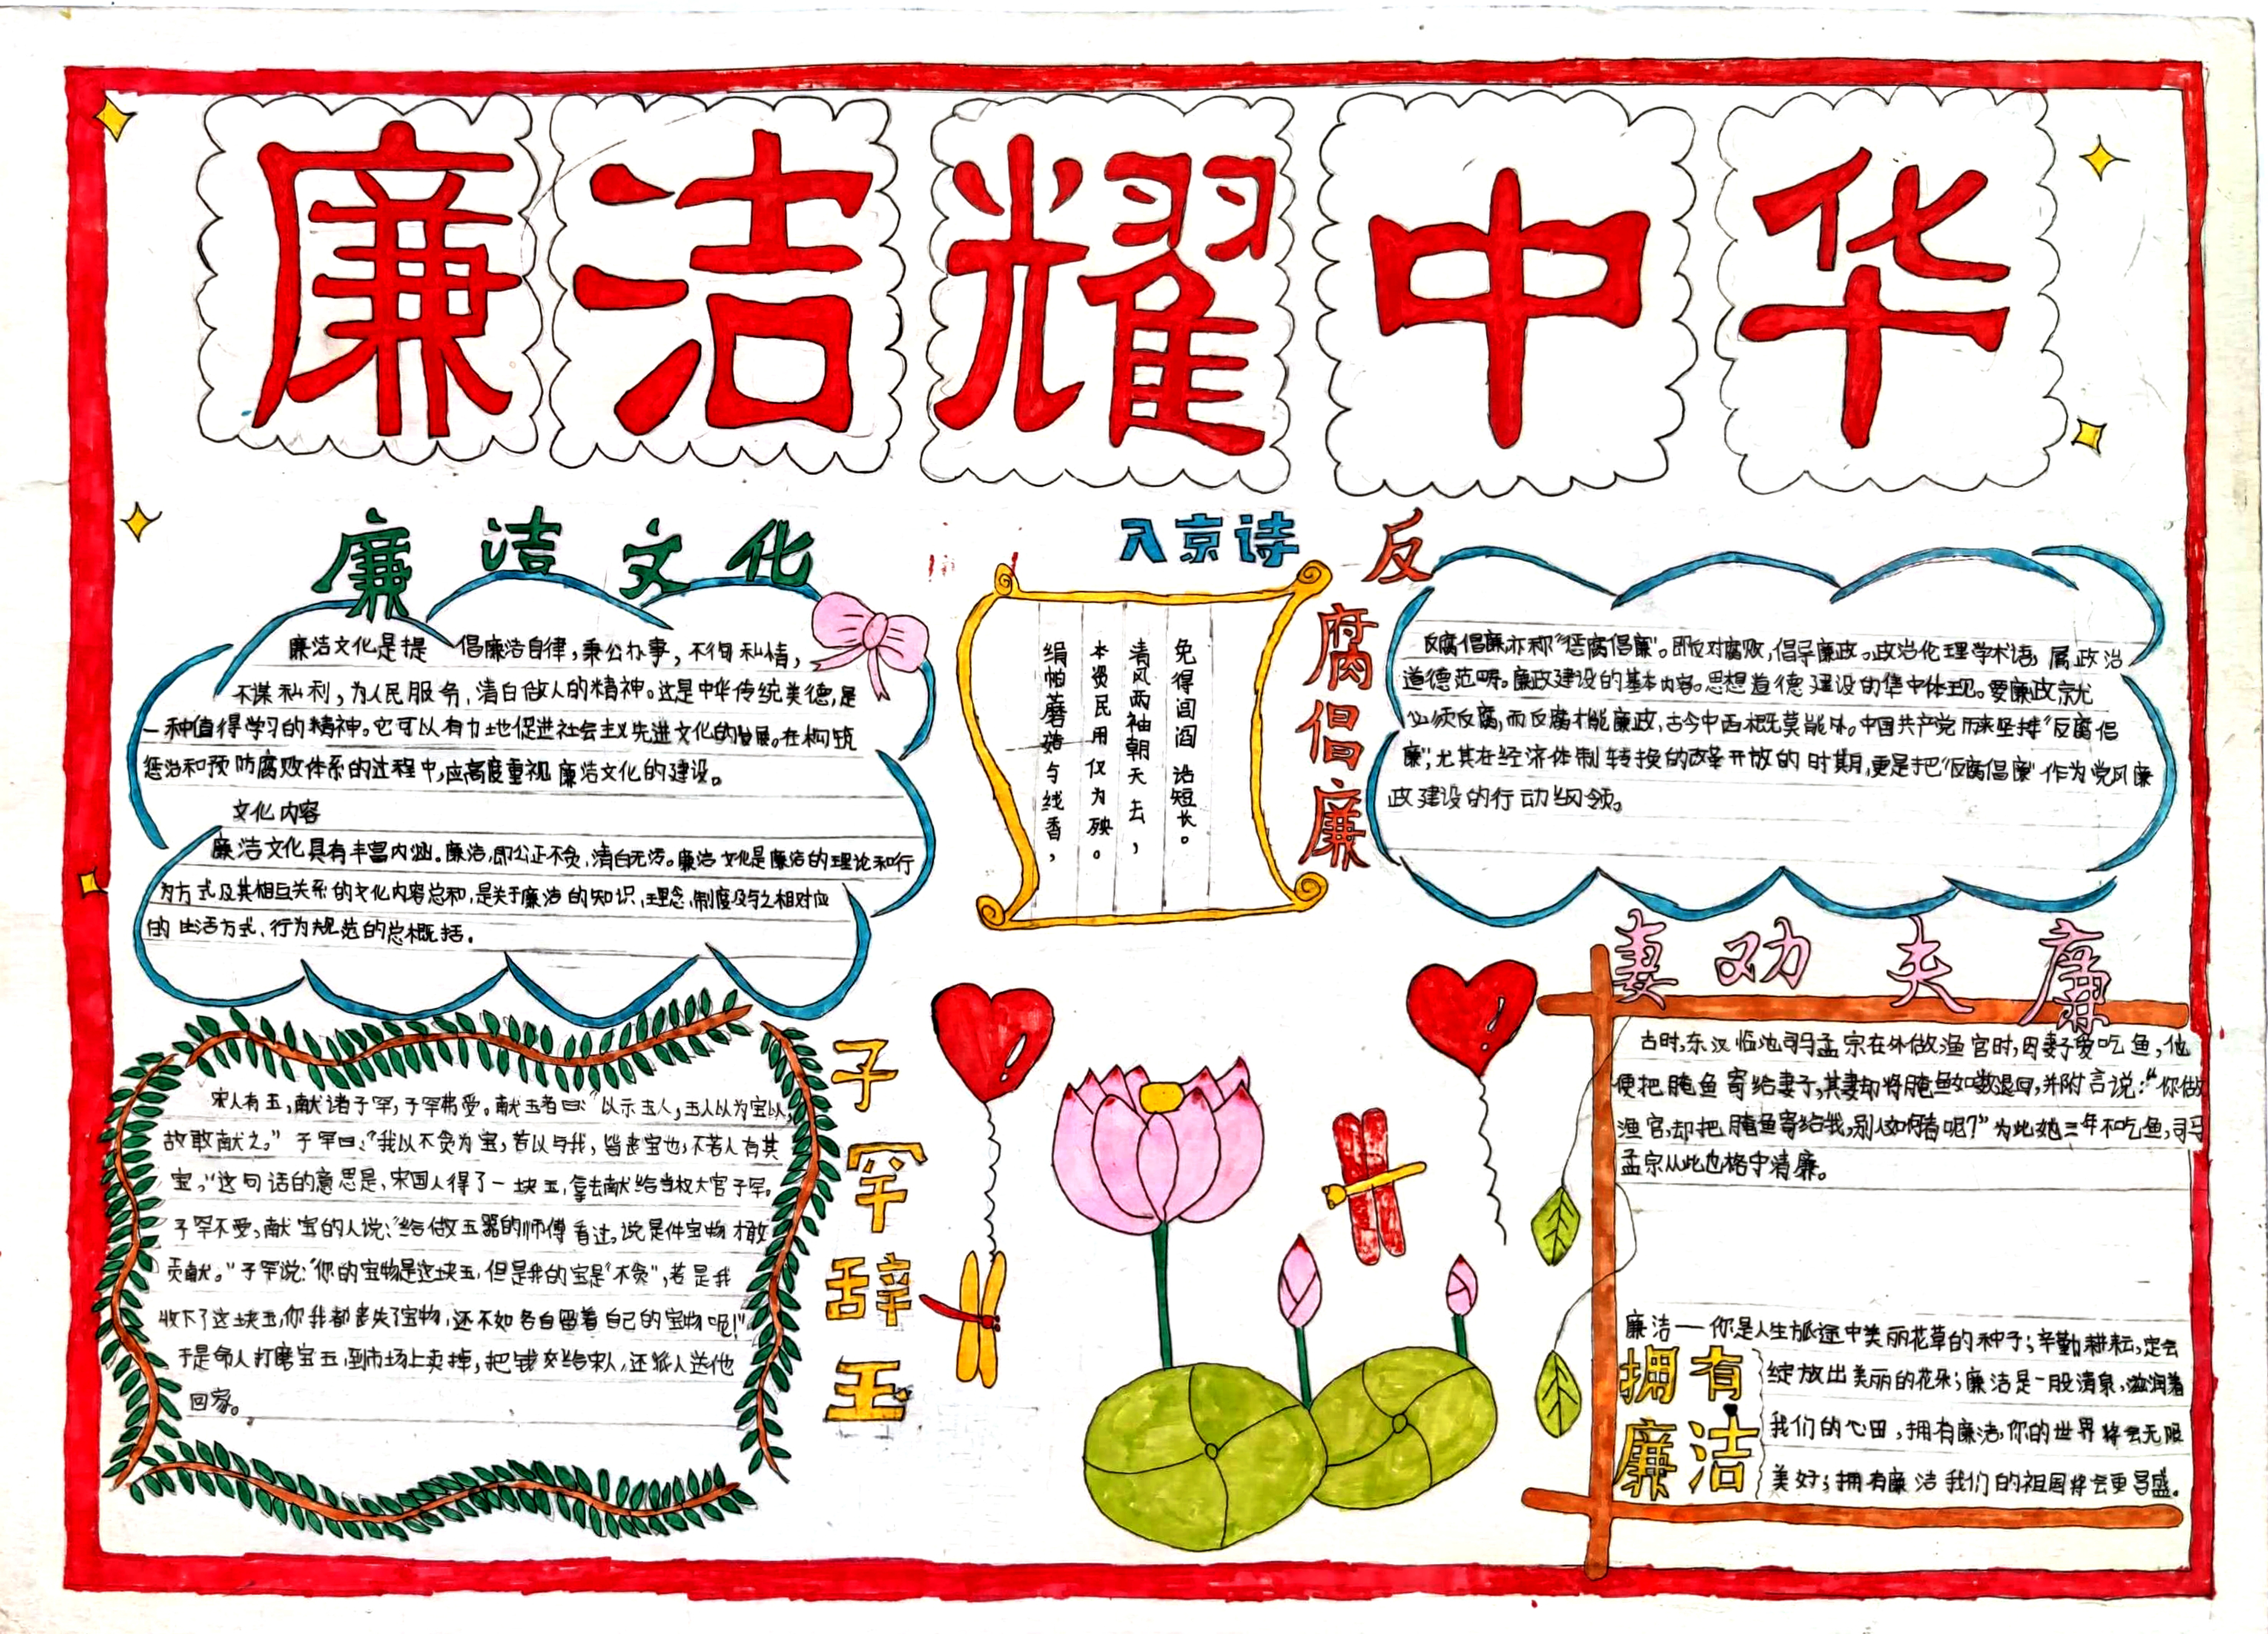 廉洁耀中华
廉洁文化
廉洁文化是提 倡廉洁自律，秉公办事，不徇私情，
不谋私利，为人民服务，清白做人的精神。这是中华传统美德，是
一种值得学习的精神。它可以有力地促进社会主义先进文化的发展。在构筑
惩治和预防腐败体系的过程中，应高度重视廉洁文化的建设。
文化内容
廉洁文化具有丰富内涵。廉洁，即公正不贪，清白无污。廉洁文化是廉洁的理论和行
为方式及其相互关系的文化内容总和，是关于廉洁的知识、理念、制度及与之相对应
的生活方式、行为规范的总概括。
入京诗
绢帕蘑菇与线香，
本资民用仅为殃。
清风两袖朝天去，
免得闾阎话短长。
反腐倡廉
反腐倡廉亦称“惩腐倡廉”。即反对腐败，倡导廉政。政治伦理学术语，属政治
道德范畴。廉政建设的基本内容。思想道德建设的集中体现。要廉政就
必须反腐，而反腐才能廉政，古今中西概莫能外。中国共产党历来坚持“反腐倡
廉”，尤其在经济体制转换的改革开放的时期，更是把“反腐倡廉”作为党风廉
政建设的行动纲领。
子罕辞玉
宋人有玉，献诸子罕，子罕弗受。献玉者曰：“以示玉人，玉人以为宝以，
故敢献之。”子罕曰：“我以不贪为宝，若以与我，皆丧宝也，不若人有其
宝，”这句话的意思是，宋国人得了一块玉，拿去献给当权大官子罕。
子罕不受，献宝的人说：“给做玉器的师傅看过，说是件宝物才敢
贡献。”子罕说：“你的宝物是这块玉，但是我的宝是“不贪”，若是我
收下了这块玉，你我都丧失了宝物，还不如各自留着自己的宝物呢！”
于是命人打磨宝玉，到市场上卖掉，把钱交给宋人，还派人送他
回家。
妻劝夫廉
古时，东汉临池司马孟宗在外做渔官时，因妻子爱吃鱼，他
便把腌鱼寄给妻子，其妻却将腌鱼如数退回，并附言说：“你做
渔官，却把腌鱼寄给我，别人如何看呢？”为此她三年不吃鱼，司马
孟宗从此也格守清廉。
拥有
廉洁
廉洁——你是人生旅途中美丽花草的种子；辛勤耕耘，定会
绽放出美丽的花朵；廉洁是一股清泉，滋润着
我们的心田，拥有廉洁，你的世界将会无限
美好；拥有廉洁我们的祖国将会更昌盛。